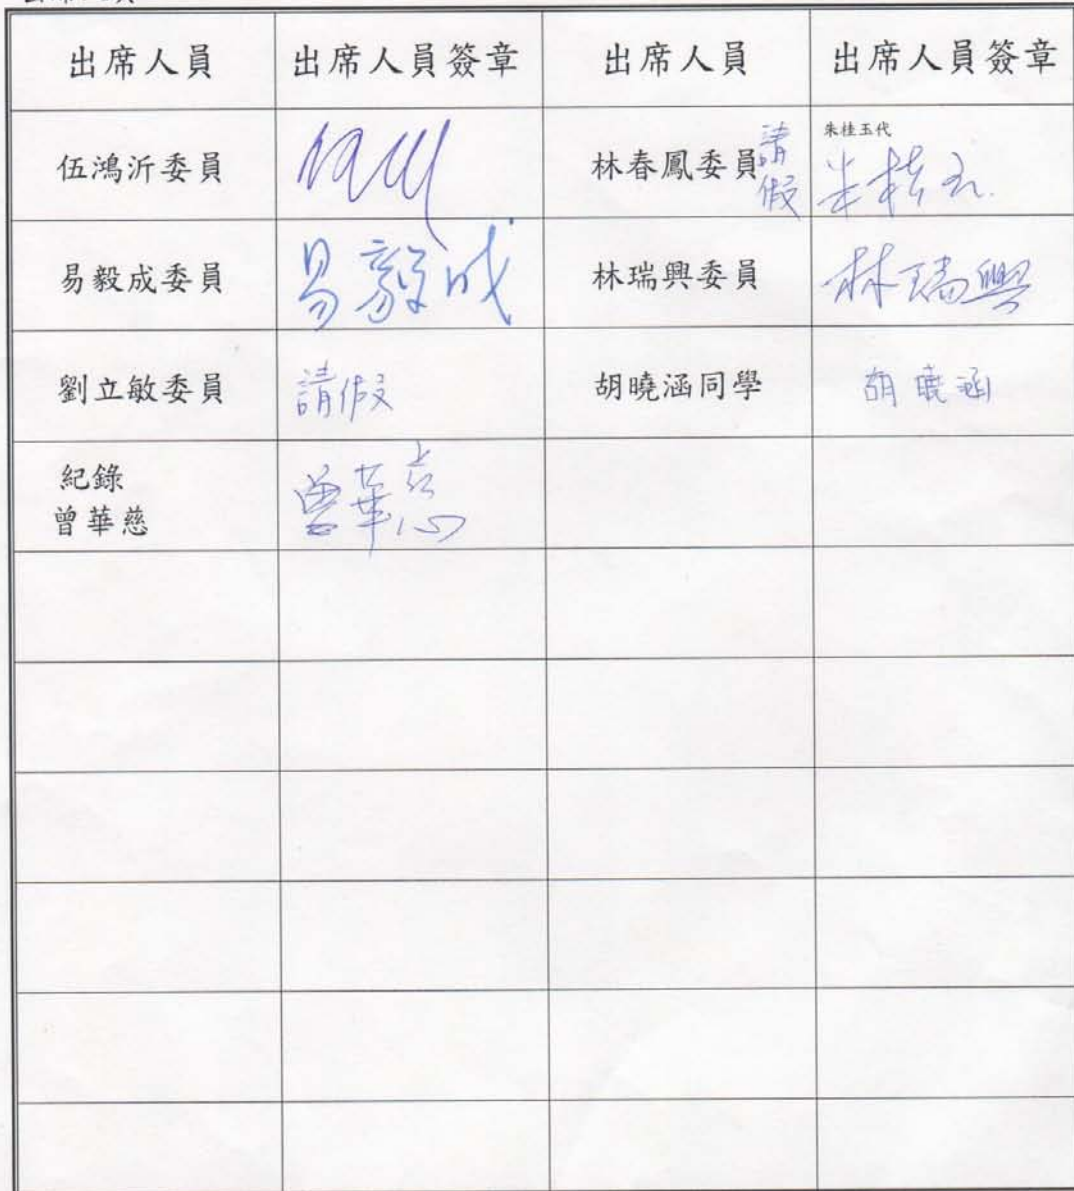 出席人員 出席人員簽章 出席人員 出席人員簽章
伍鴻沂委員 林春鳳委員 請假 朱桂玉代 朱桂玉
易毅成委員 易毅成 林瑞興委員 林瑞興
劉立敏委員 請假 胡曉涵同學 胡曉涵
紀錄
曾華慈 曾華慈